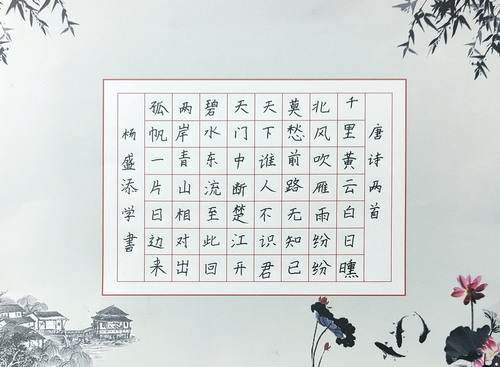 唐诗两首
千里黄云白日曛
北风吹雁雨纷纷
莫愁前路无知己
天下谁人不识君
天门中断楚江开
碧水东流至此回
两岸青山相对出
孤帆一片日边来
杨盛添学書